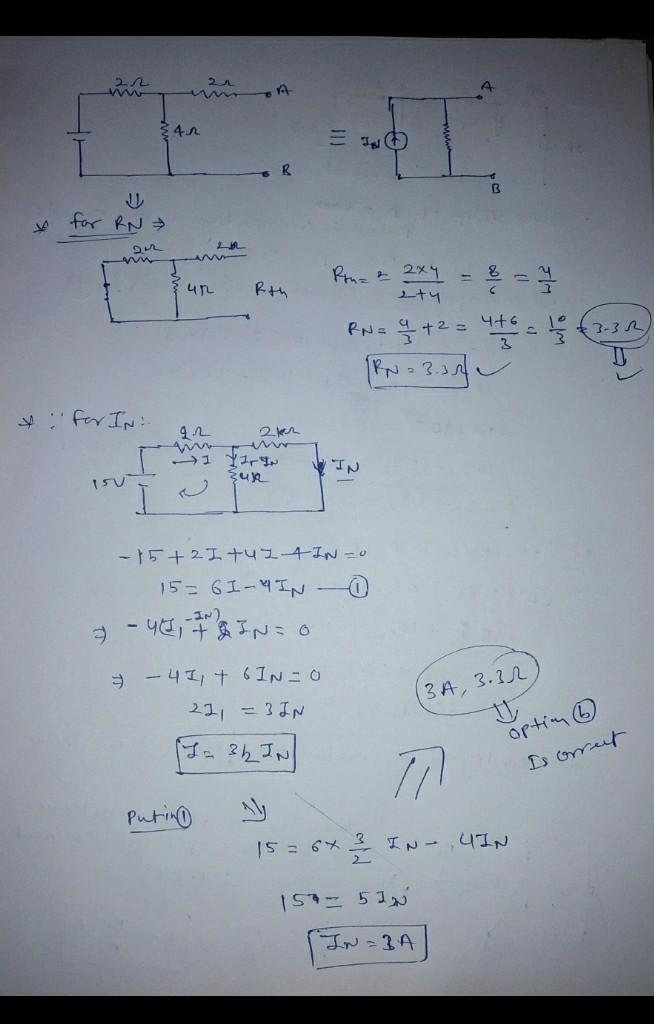 2Ω 2Ω A
4Ω
B
≡ IN A
B
⇓
* for RN ⇒
2Ω 2Ω
4Ω Rth
Rth = 2×4/2+4 = 8/6 = 4/3
RN = 4/3 + 2 = 4+6/3 = 10/3 = 3.3Ω
RN = 3.3Ω ✓
* ∵ for IN:
2Ω 2Ω
→I I-IN IN
15V 4Ω
-15+2I+4I-4IN=0
15 = 6I-4IN —①
⇒ -4(I1-IN) + 2IN = 0
⇒ -4I1 + 6IN = 0
2I1 = 3IN
I = 3/2 IN
3A, 3.3Ω
option ⓑ
Is correct
Put in ①
15 = 6× 3/2 IN - 4IN
15 = 5IN
IN = 3A